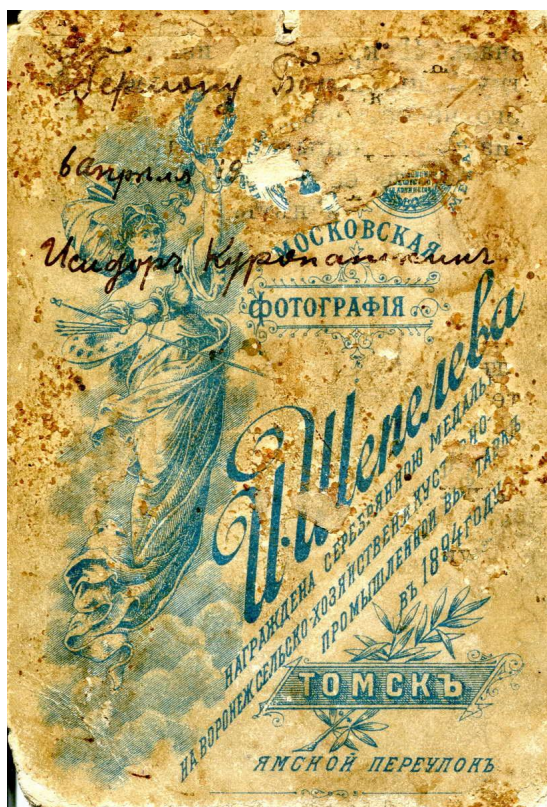 6 апреля 19
Исидоръ Куропаткинъ
МОСКОВСКАЯ
ФОТОГРАФІЯ
И. Щепелева
НАГРАЖДЕНА СЕРЕБРЯННОЮ МЕДАЛЬЮ
НА ВОРОНЕЖ СЕЛЬСКО-ХОЗЯЙСТВЕН И КУСТ
ПРОМЫШЛЕННОЙ
ВЪ 1894 ГОДУ
ТОМСКЪ
ЯМСКОЙ ПЕРЕУЛОКЪ